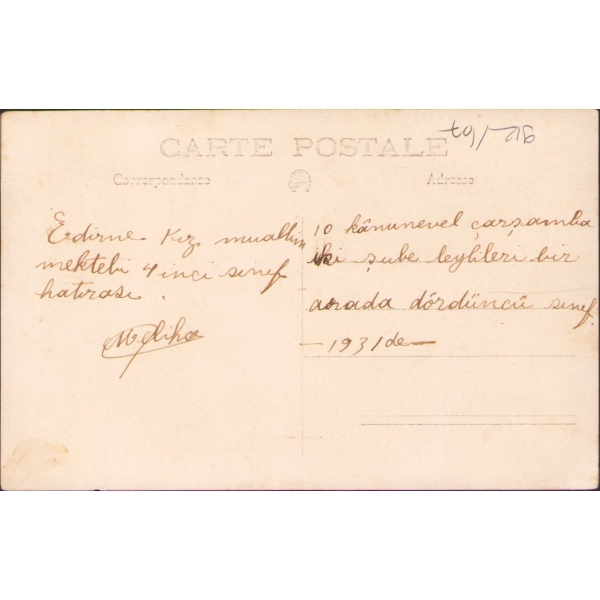 CARTE POSTALE
Correspondance
Adresse
Edirne Kız muallim
mektebi 4 inci sınıf
hatırası.
Meliha
10 kânunevel çarşamba
iki şube leylileri bir
arada dördüncü sınıf.
—1931 de—